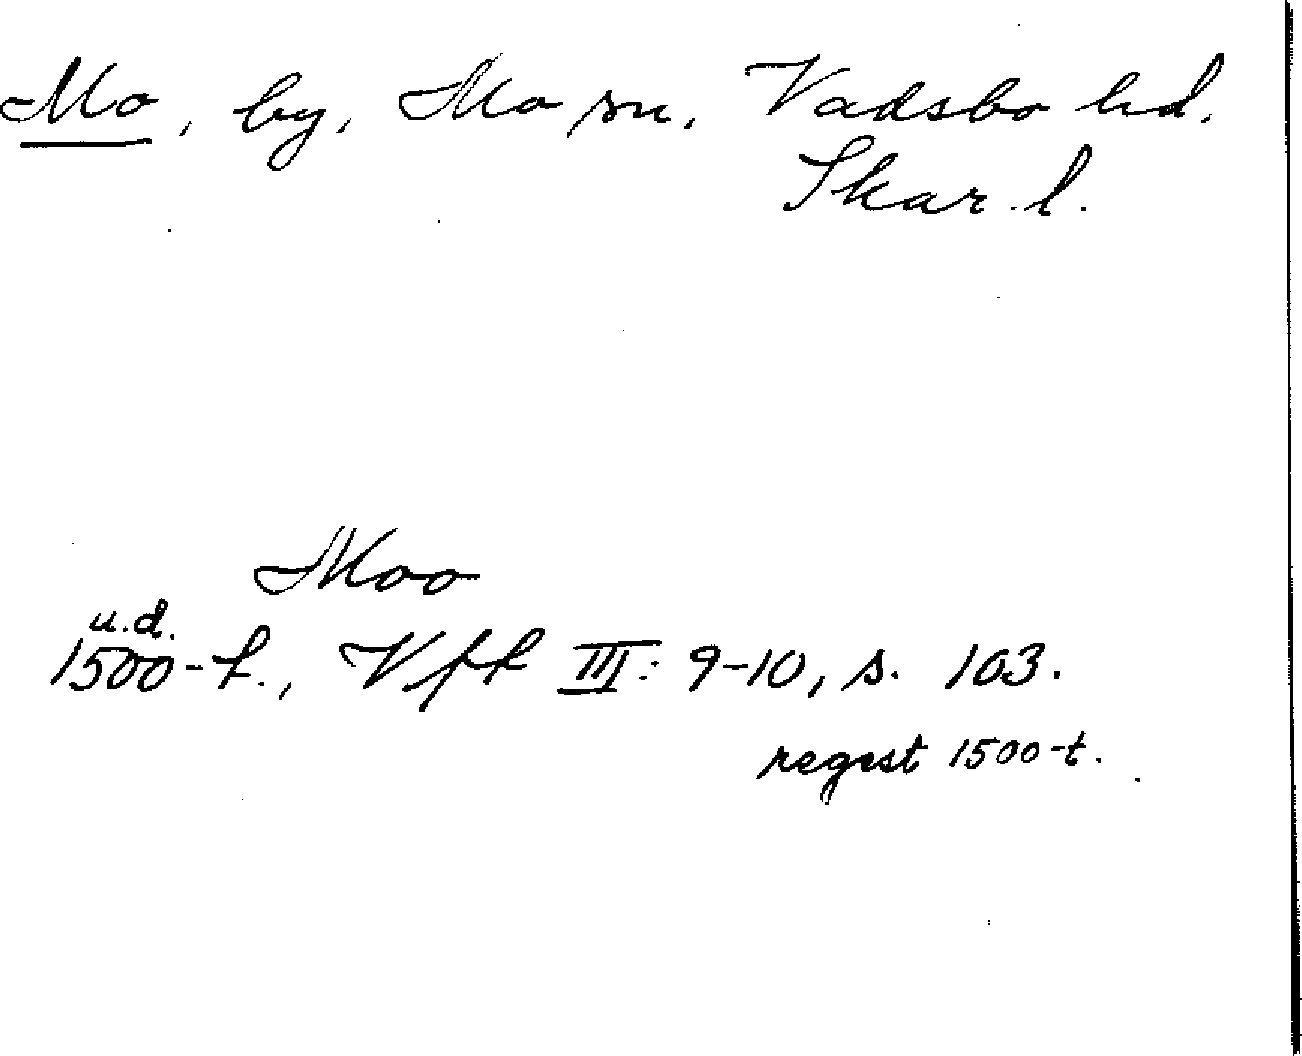 Mo, by, Mo sn, Vadsbo hd.
Skar. l.
Moo
u.d.
1500-t., Vft III: 9-10, s. 103.
regest 1500-t.